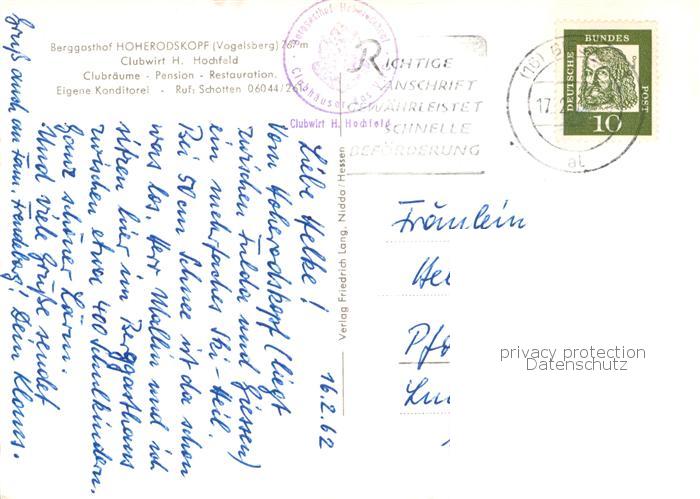 Berggasthof HOHERODSKOPF (Vogelsberg) 767m
Clubwirt H. Hochfeld
Clubräume - Pension - Restauration.
Eigene Konditorei - Ruf: Schotten 06044/261
Berggasthof Hoherodskopf
Clubhäuser des
Clubwirt H. Hochfeld
RICHTIGE
ANSCHRIFT
GEWÄHRLEISTET
SCHNELLE
BEFÖRDERUNG
(16)
17.2.
at
DEUTSCHE BUNDES POST
10
16.2.62
Liebe Helke!
Vom Hoherodskopf (liegt
zwischen Fulda und Giessen)
ein mehrfaches Ski-Heil.
Bei 50 cm Schnee ist da schon
was los. Herr Mallin und ich
sitzen hier im Berggasthaus
zwischen etwa 400 Schulkindern.
Ganz schöner Lärm.
Und viele Grüße sendet
Dein Klones.
Gruß auch an Fam. Trendelbog!
Verlag Friedrich Lang, Nidda/Hessen
Fräulein
He
Pf
privacy protection
Datenschutz